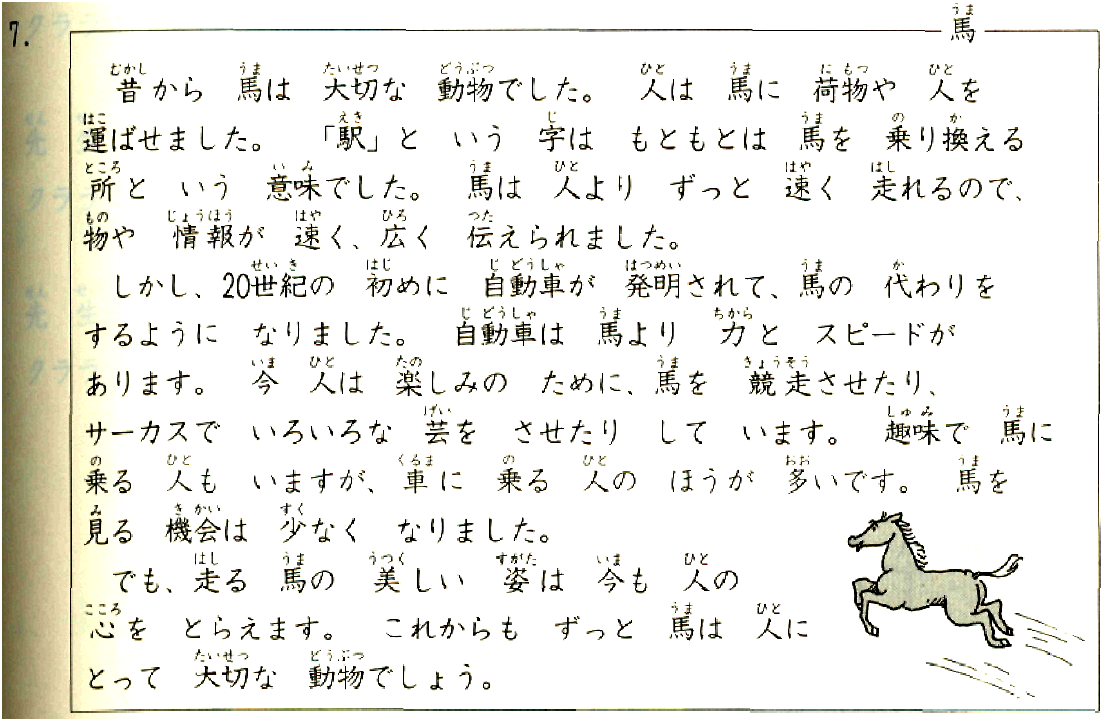 7.
馬
昔から 馬は 大切な 動物でした。 人は 馬に 荷物や 人を
運ばせました。 「駅」と いう 字は もともとは 馬を 乗り換える
所と いう 意味でした。 馬は 人より ずっと 速く 走れるので、
物や 情報が 速く、広く 伝えられました。
しかし、20世紀の 初めに 自動車が 発明されて、馬の 代わりを
するように なりました。 自動車は 馬より 力と スピードが
あります。 今 人は 楽しみの ために、馬を 競走させたり、
サーカスで いろいろな 芸を させたり して います。 趣味で 馬に
乗る 人も いますが、車に 乗る 人の ほうが 多いです。 馬を
見る 機会は 少なく なりました。
でも、走る 馬の 美しい 姿は 今も 人の
心を とらえます。 これからも ずっと 馬は 人に
とって 大切な 動物でしょう。